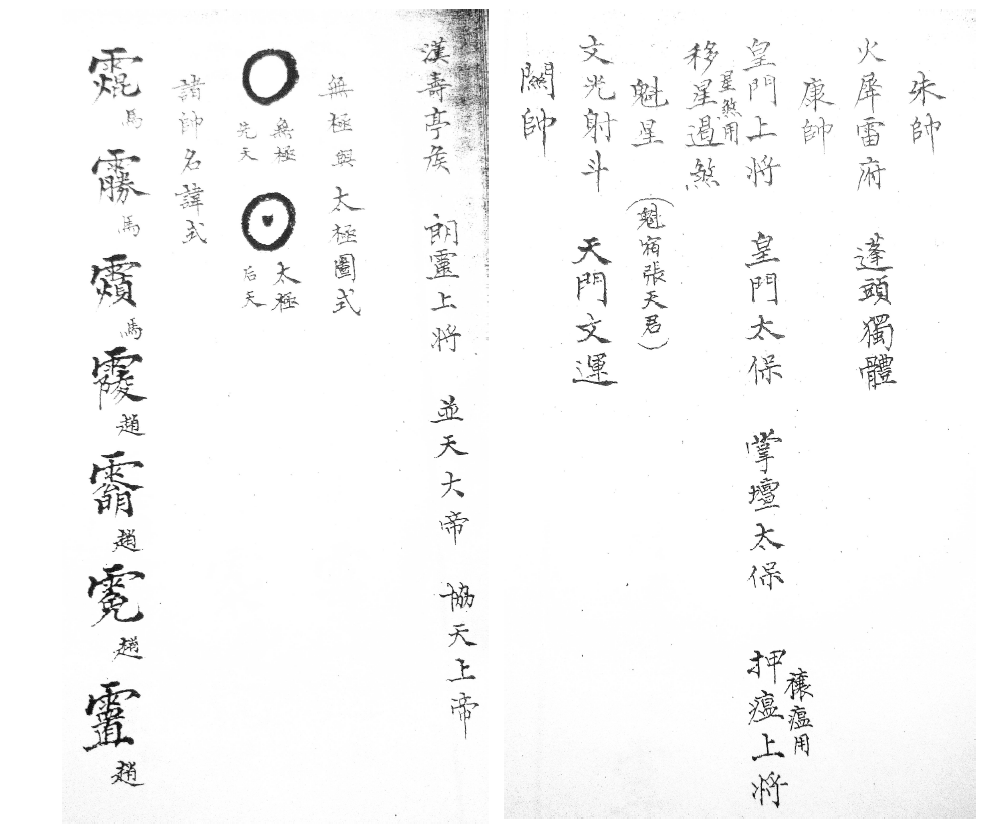 朱帥
火犀雷府 蓬頭獨體
康帥
皇門上将 皇門太保 掌壇太保 押瘟上将
禳瘟用
星煞用
移星過煞
魁星（魁宿張天君）
文光射斗 天門文運
關帥
漢壽亭侯 朗靈上将 並天大帝 協天上帝
無極與太極圖式
無極
先天
太極
后天
諸帥名諱式
馬
馬
馬
趙
趙
趙
趙